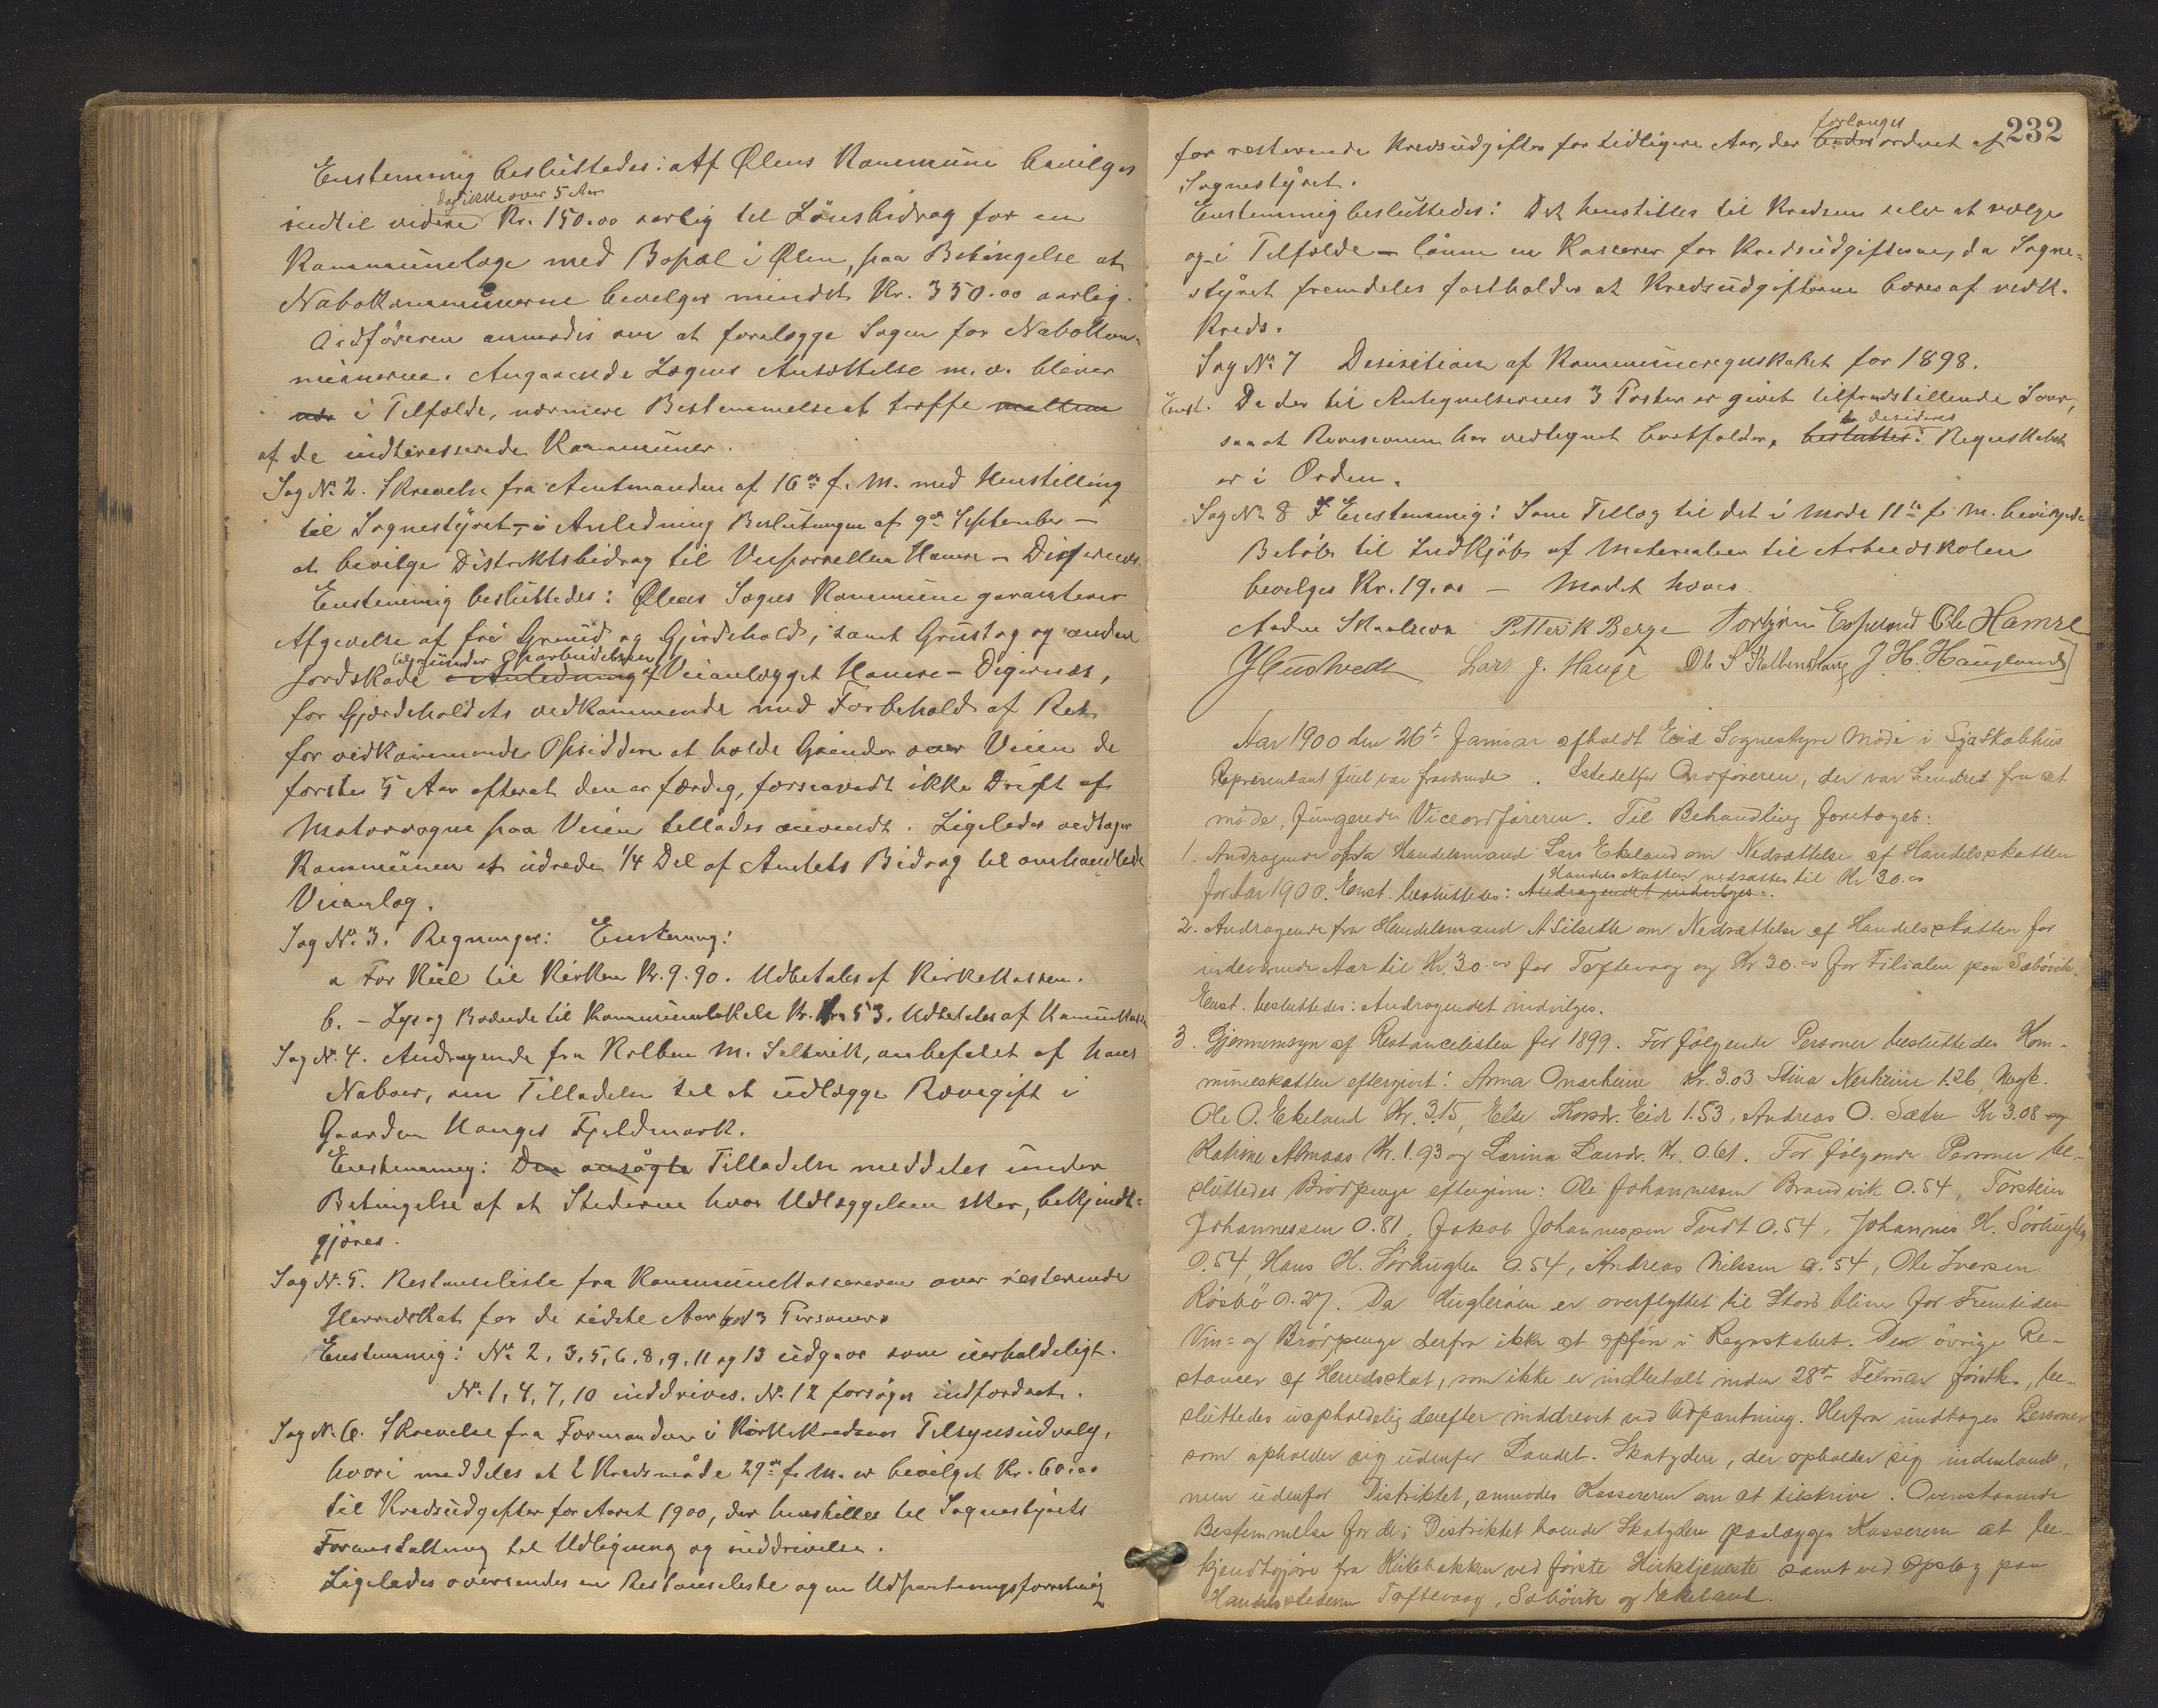 Enstemmig besluttedes: Af Ølens Kommune bevilges
dog ikke over 5 Aar
indtil videre Kr. 150.00 aarlig til Lönsbidrag for en
Kommunelæge med Bopæl i Ølen, paa Betingelse at
Nabokommunerne bevilger mindst Kr. 350.00 aarlig.
Ordföreren anmodes om at forelægge Sagen for Nabokom-
munerne. Angaaende Lægens Ansættelse m.v. bliver
i Tilfælde, nærmere Bestemmelse at træffe mellem
af de indteresserede Kommuner.
Sag No 2. Skrivelse fra Amtmanden af 16de f. M. med Henstilling
til Sognestyret, i Anledning Beslutningen af 9de September –
at bevilge Distriktsbidrag til Veiparcellen Hamre – Digernæs.
Enstemmig besluttedes: Ølens Sogns Kommune garanterer
Afgivelse af fri Grund og Gjerdehold, samt Grustag og anden
under Oparbeidelsen
Jordskade i Anledning af Veianlægget Hamre – Digernæs,
for Gjerdeholdets vedkommende med Forbehold af Ret
for vedkommende Opsiddere at holde Grinder over Veien de
förste 5 Aar efterat den er færdig, forsaavidt ikke Drift af
Motorvogne paa Veien tillades anvendt. Ligeledes vedtager
Kommunen at udrede 1/4 Del af Amtets Bidrag til omhandlede
Veianlæg.
Sag No 3. Regninger: Enstemmig:
a For Kul til Kirken Kr. 9.90. Udbetales af Kirkekassen.
b. – Lys og Brænde til Kommunelokale Kr. 53. Udbetales af Kommunekassen
Sag No. 4. Andragende fra Kolben M. Saltvik, anbefalet af hans
Naboer, om Tilladelse til at udlægge Rævegift i
Gaarden Hauges Fjeldmark.
Enstemmig: Den ansøgte Tilladelse meddeles under
Betingelse af at Stederne hvor Udlæggelsen sker, bekjendt-
gjöres.
Sag No. 5. Restanseliste fra Kommunekassereren over resterende
Herredskat for de sidste Aar hos 13 Personer.
Enstemmig: No 2, 3, 5, 6, 8, 9, 11 og 13 udgaar som uerholdeligt.
No 1, 4, 7, 10 inddrives. No. 12 forsöges indfordret.
Sag No. 6. Skrivelse fra Formanden i Kirkekredsens Tilsynsudvalg,
hvori meddeles at i Kredsmöde 29de f. M. er bevilget Kr. 60.00
til Kredsudgifter for Aaret 1900, der henstilles til Sognestyrets
Foranstaltning til Udligning og inddrivelse.
Ligeledes oversendes en Restanseliste og en Udpantningsforretning
232
forlanges
for resterende Kredsudgifter for tidligere Aar, der bedes ordnet af
Sognestyret.
Enstemmig besluttedes: Det henstilles til Kredsen selv at vælge
og i Tilfælde – lönne en Kasserer for Kredsudgifterne, da Sogne-
styret fremdeles fastholder at Kredsudgifterne bæres af vedk.
Kreds.
Sag No 7 Desisition af Kommuneregnskabet for 1898.
Enst. Da der til Antegnelsernes 3 Poster er givet tilfredstillende Svar,
desideres
saa at Revisionen har vedtegnet bortfalder, besluttes: Regnskabet
er i Orden.
Sag No 8 Enstemmig: Som Tillæg til det i Möde 11te f. M. bevilgede
Belöb til Indkjöb af Materialier til Arbeidskolen
bevilges Kr. 19.00 – Mödet hæves.
Petter K Berge Torbjörn Espeland Ole Hamre
Lars J. Hauge J. H. Haugland
Aar 1900 den 26de Januar afholdt Eid Sognestyre Möde i Sjoskabhus
Representant Juel var fraværende. Istedetfor Ordföreren, der var hindret fra at
möde, fungerede Viceordföreren. Til Behandling foretoges:
1. Andragende fra Handelsmand Lars Ekeland om Nedsættelse af Handelsskatten
Handelsskatten nedsættes til Kr 30.00
for Aar 1900. Enst. besluttedes: Andragendet indvilges.
2. Andragende fra Handelsmand A Silseth om Nedsættelse af Handelsskatten for
indeværende Aar til Kr. 30.00 for Toftevaag og Kr 30.00 for Filialen paa Sæbövik.
Enst. besluttedes: Andragendet indvilges.
3. Gjennemsyn af Restancelisten for 1899. For følgende Personer besluttedes Kom-
muneskatten eftergivet: Anna Onarheim Kr. 3.03 Stina Nerheim 1.26
Ole O. Ekeland Kr. 3.15, Else Thorsdr. Eide 1.53, Andreas O. Sætre Kr 3.08 og
Katrine Almaas Kr. 1.93 og Larina Larsdr. Kr. 0.61. For følgende Personer be-
sluttedes Brödpenge eftergivne: Ole Johannessen Brandvik 0.54, Torstein
Johannessen 0.81, Jakob Johannessen Tvedt 0.54, Johannes H. Sörhuglen
0.54, Hans H. Sörhuglen 0.54, Andreas Nilssen 0.54, Ole Iversen
Rösbö 0.27. Da Huglöien er overflyttet til Stord bliver for Fremtiden
Vin- og Brödpenge derfra ikke at opføre i Regnskabet. De övrige Re-
stancer af Herredsskat, som ikke er indbetalt inden 28de Februar førstk., be-
sluttedes uopholdelig derefter inddrevet ved Udpantning. Herfra undtages Personer
som opholder sig udenfor Landet. Skatydere, der opholder sig indenlands,
men udenfor Distriktet, anmodes Kassereren om at tilskrive. Ovenstaaende
Bestemmelse for de i Distriktet boende Skatydere paalægges Kassereren at be-
kjendtgjöre fra Kirkebakken ved förste Kirketjeneste samt ved Opslag paa
Handelsstederne Toftevaag, Sæbövik og Ekeland.